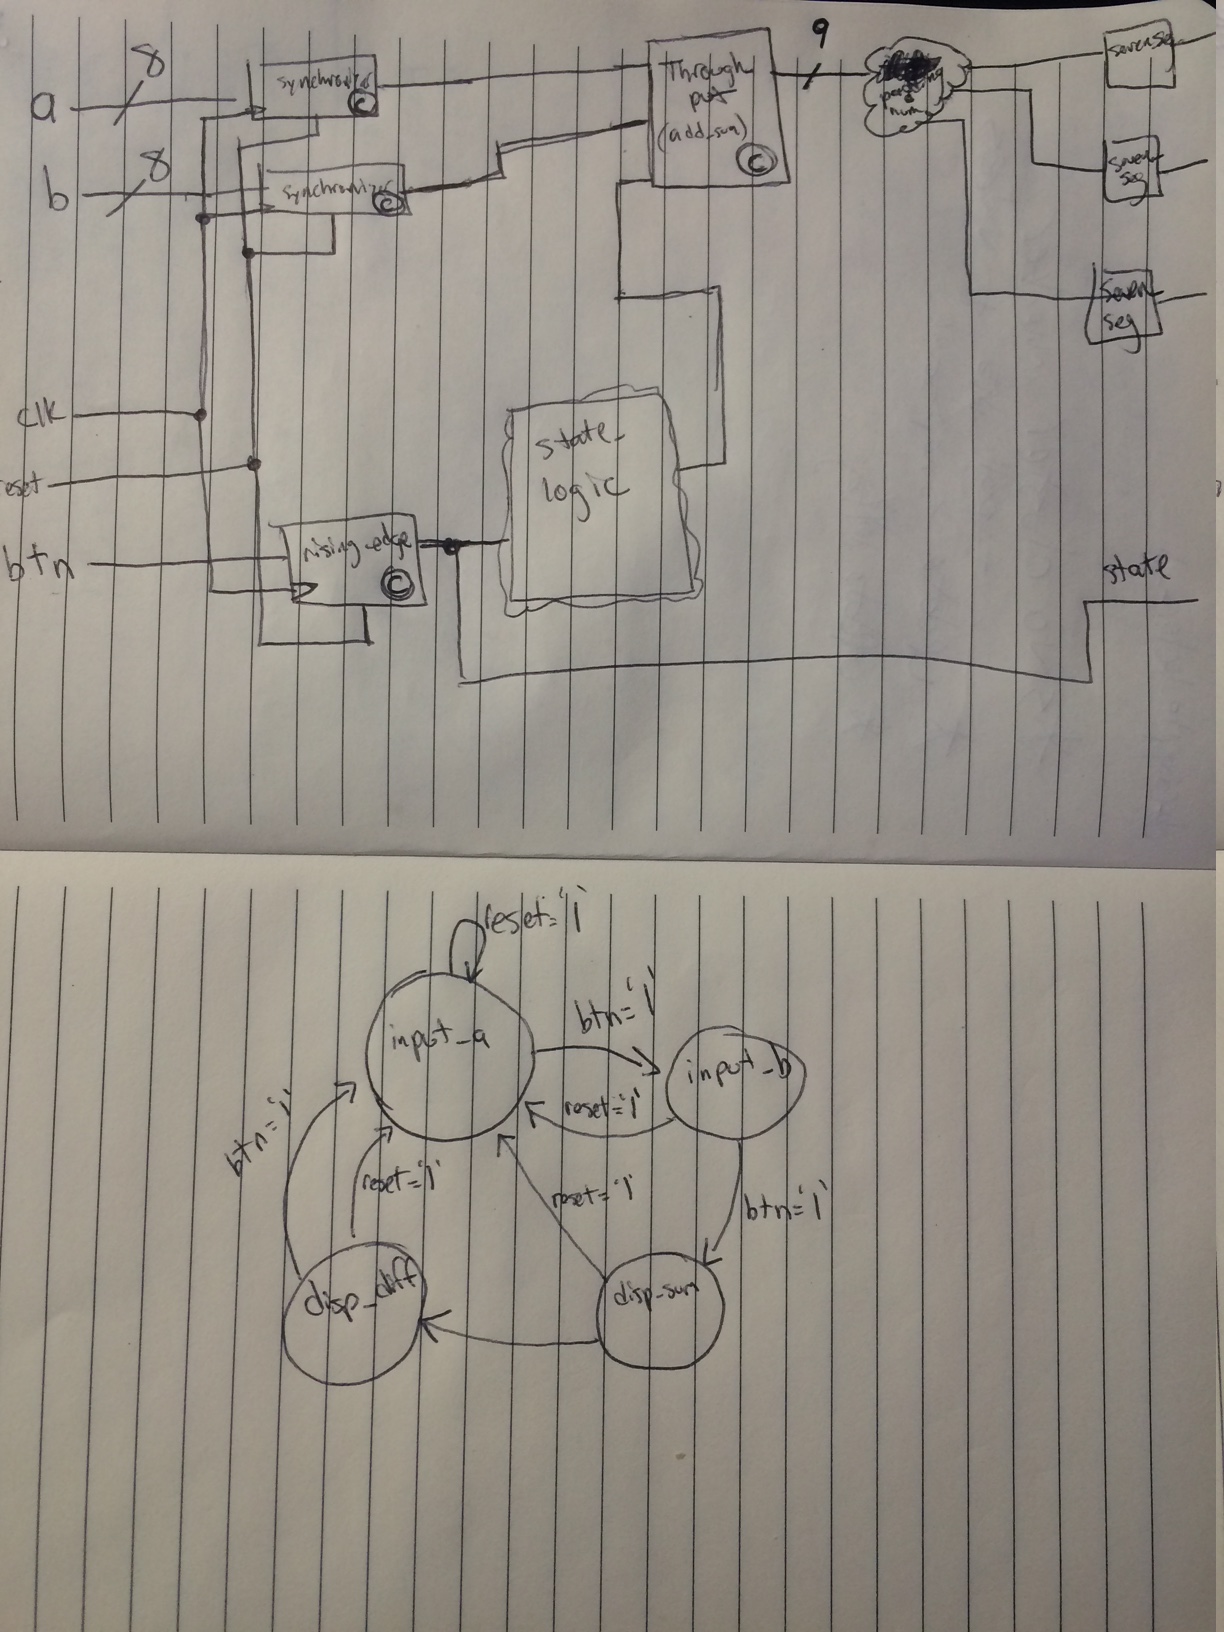 a
8
synchronizer
C
b
8
synchronizer
C
Through
put
(add_sum)
C
9
num
sevenseg
seven
seg
seven
seg
clk
eset
btn
rising_edge
C
state_
logic
state
reset='1'
input_a
btn='1'
input_b
reset='1'
btn='1'
reset='1'
reset='1'
btn='1'
disp_diff
disp_sum